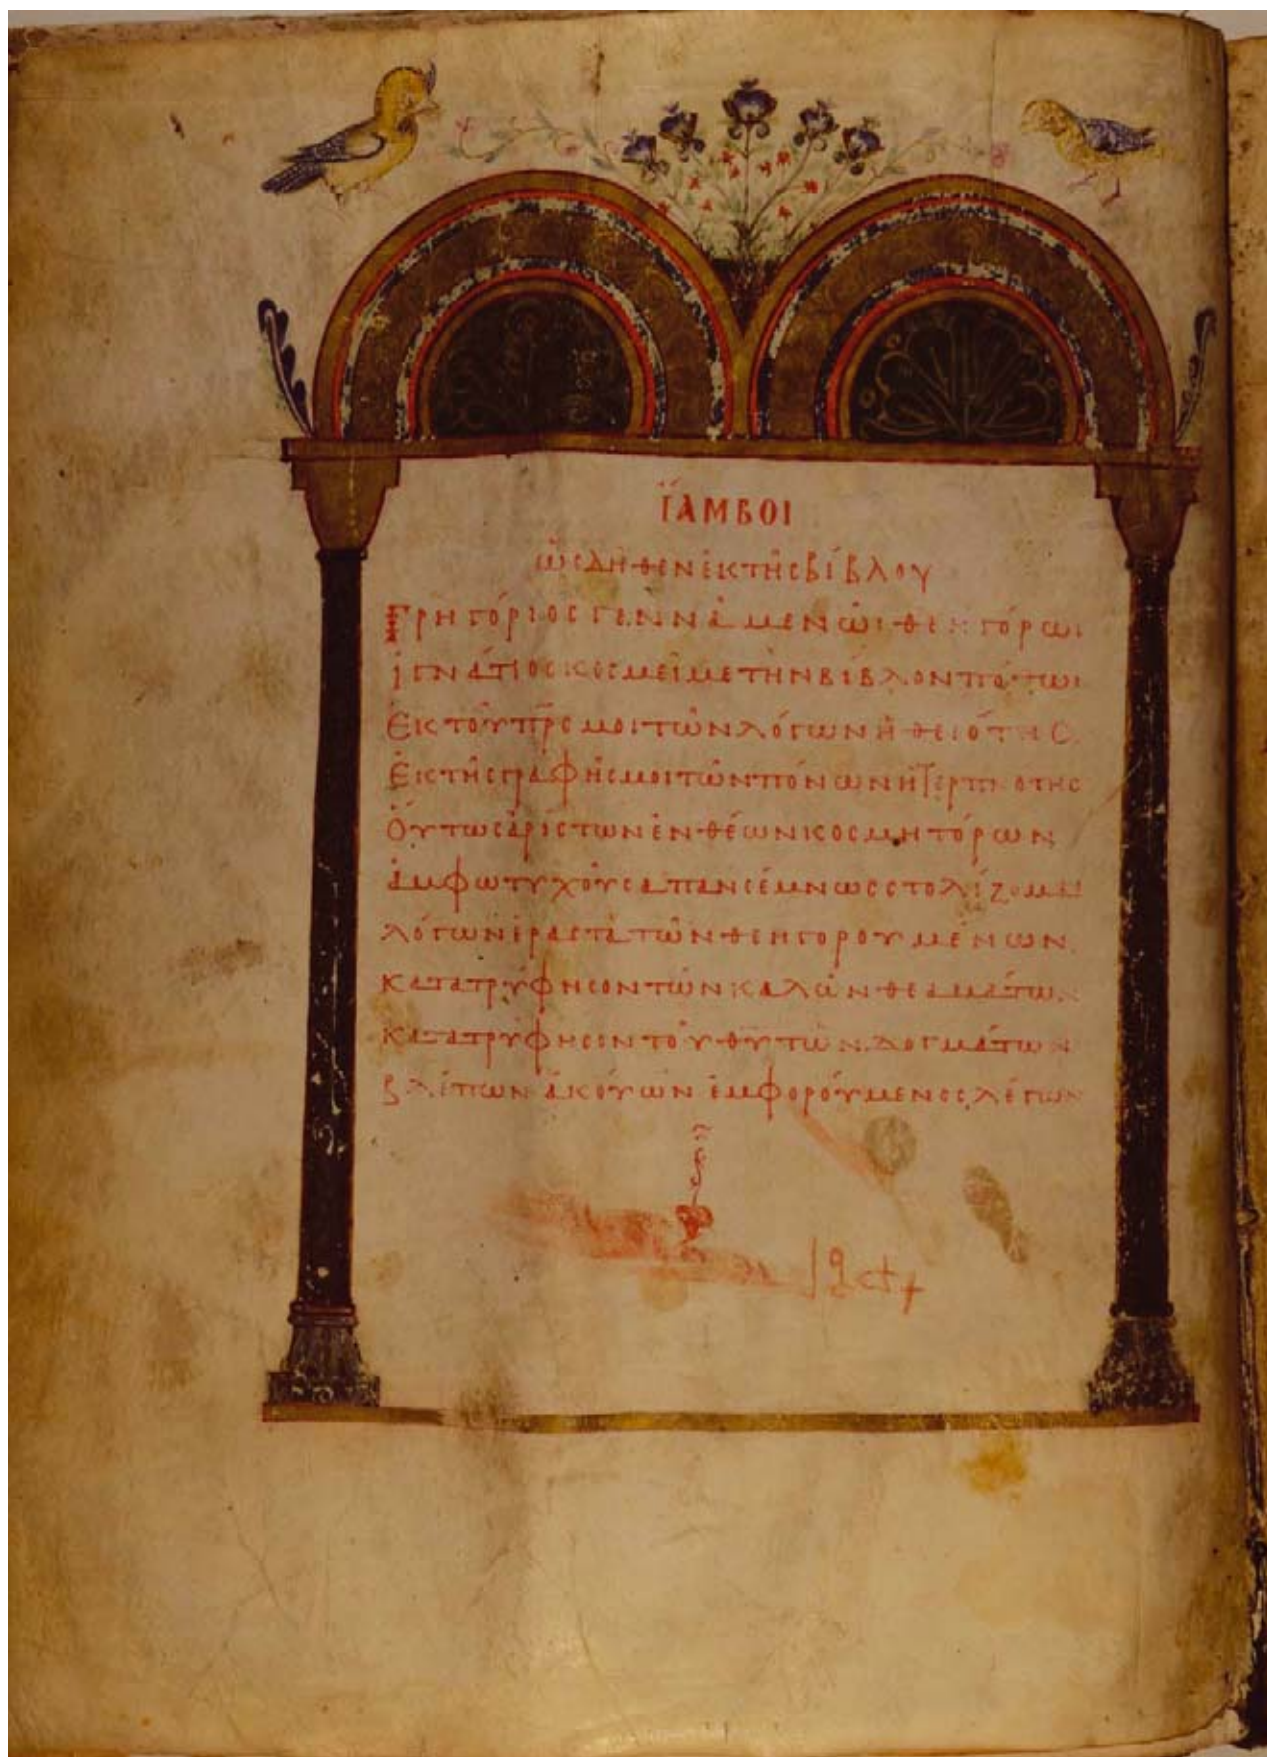 ἴΑΜΒΟΙ
ὡς δῆθεν ἐκ τῆς βίβλου
Γρηγόριος γεννᾷ μὲν ὡι θεηγόρωι
ἰγνάτιος κοσμεῖ με τὴν βίβλον πόθωι
Ἐκ τοῦ πρς μοι τῶν λόγων ἡ θειότης
Ἐκ τῆς γραφῆς μοι τῶν πόνων ἡ τερπνότης
Οὕτως ἀρίστων ἐνθέων κοσμητόρων
ἄμφω τυχοῦσα πανσέμνως στολίζομαι
λόγων ἐραστὰ τῶν θεηγορουμένων
κατατρύφησον τῶν καλῶν θεαμάτων
κατατρύφησον τοῦ θύτων δογμάτων
βλέπων ἀκούων ἐμφορούμενος λέγων